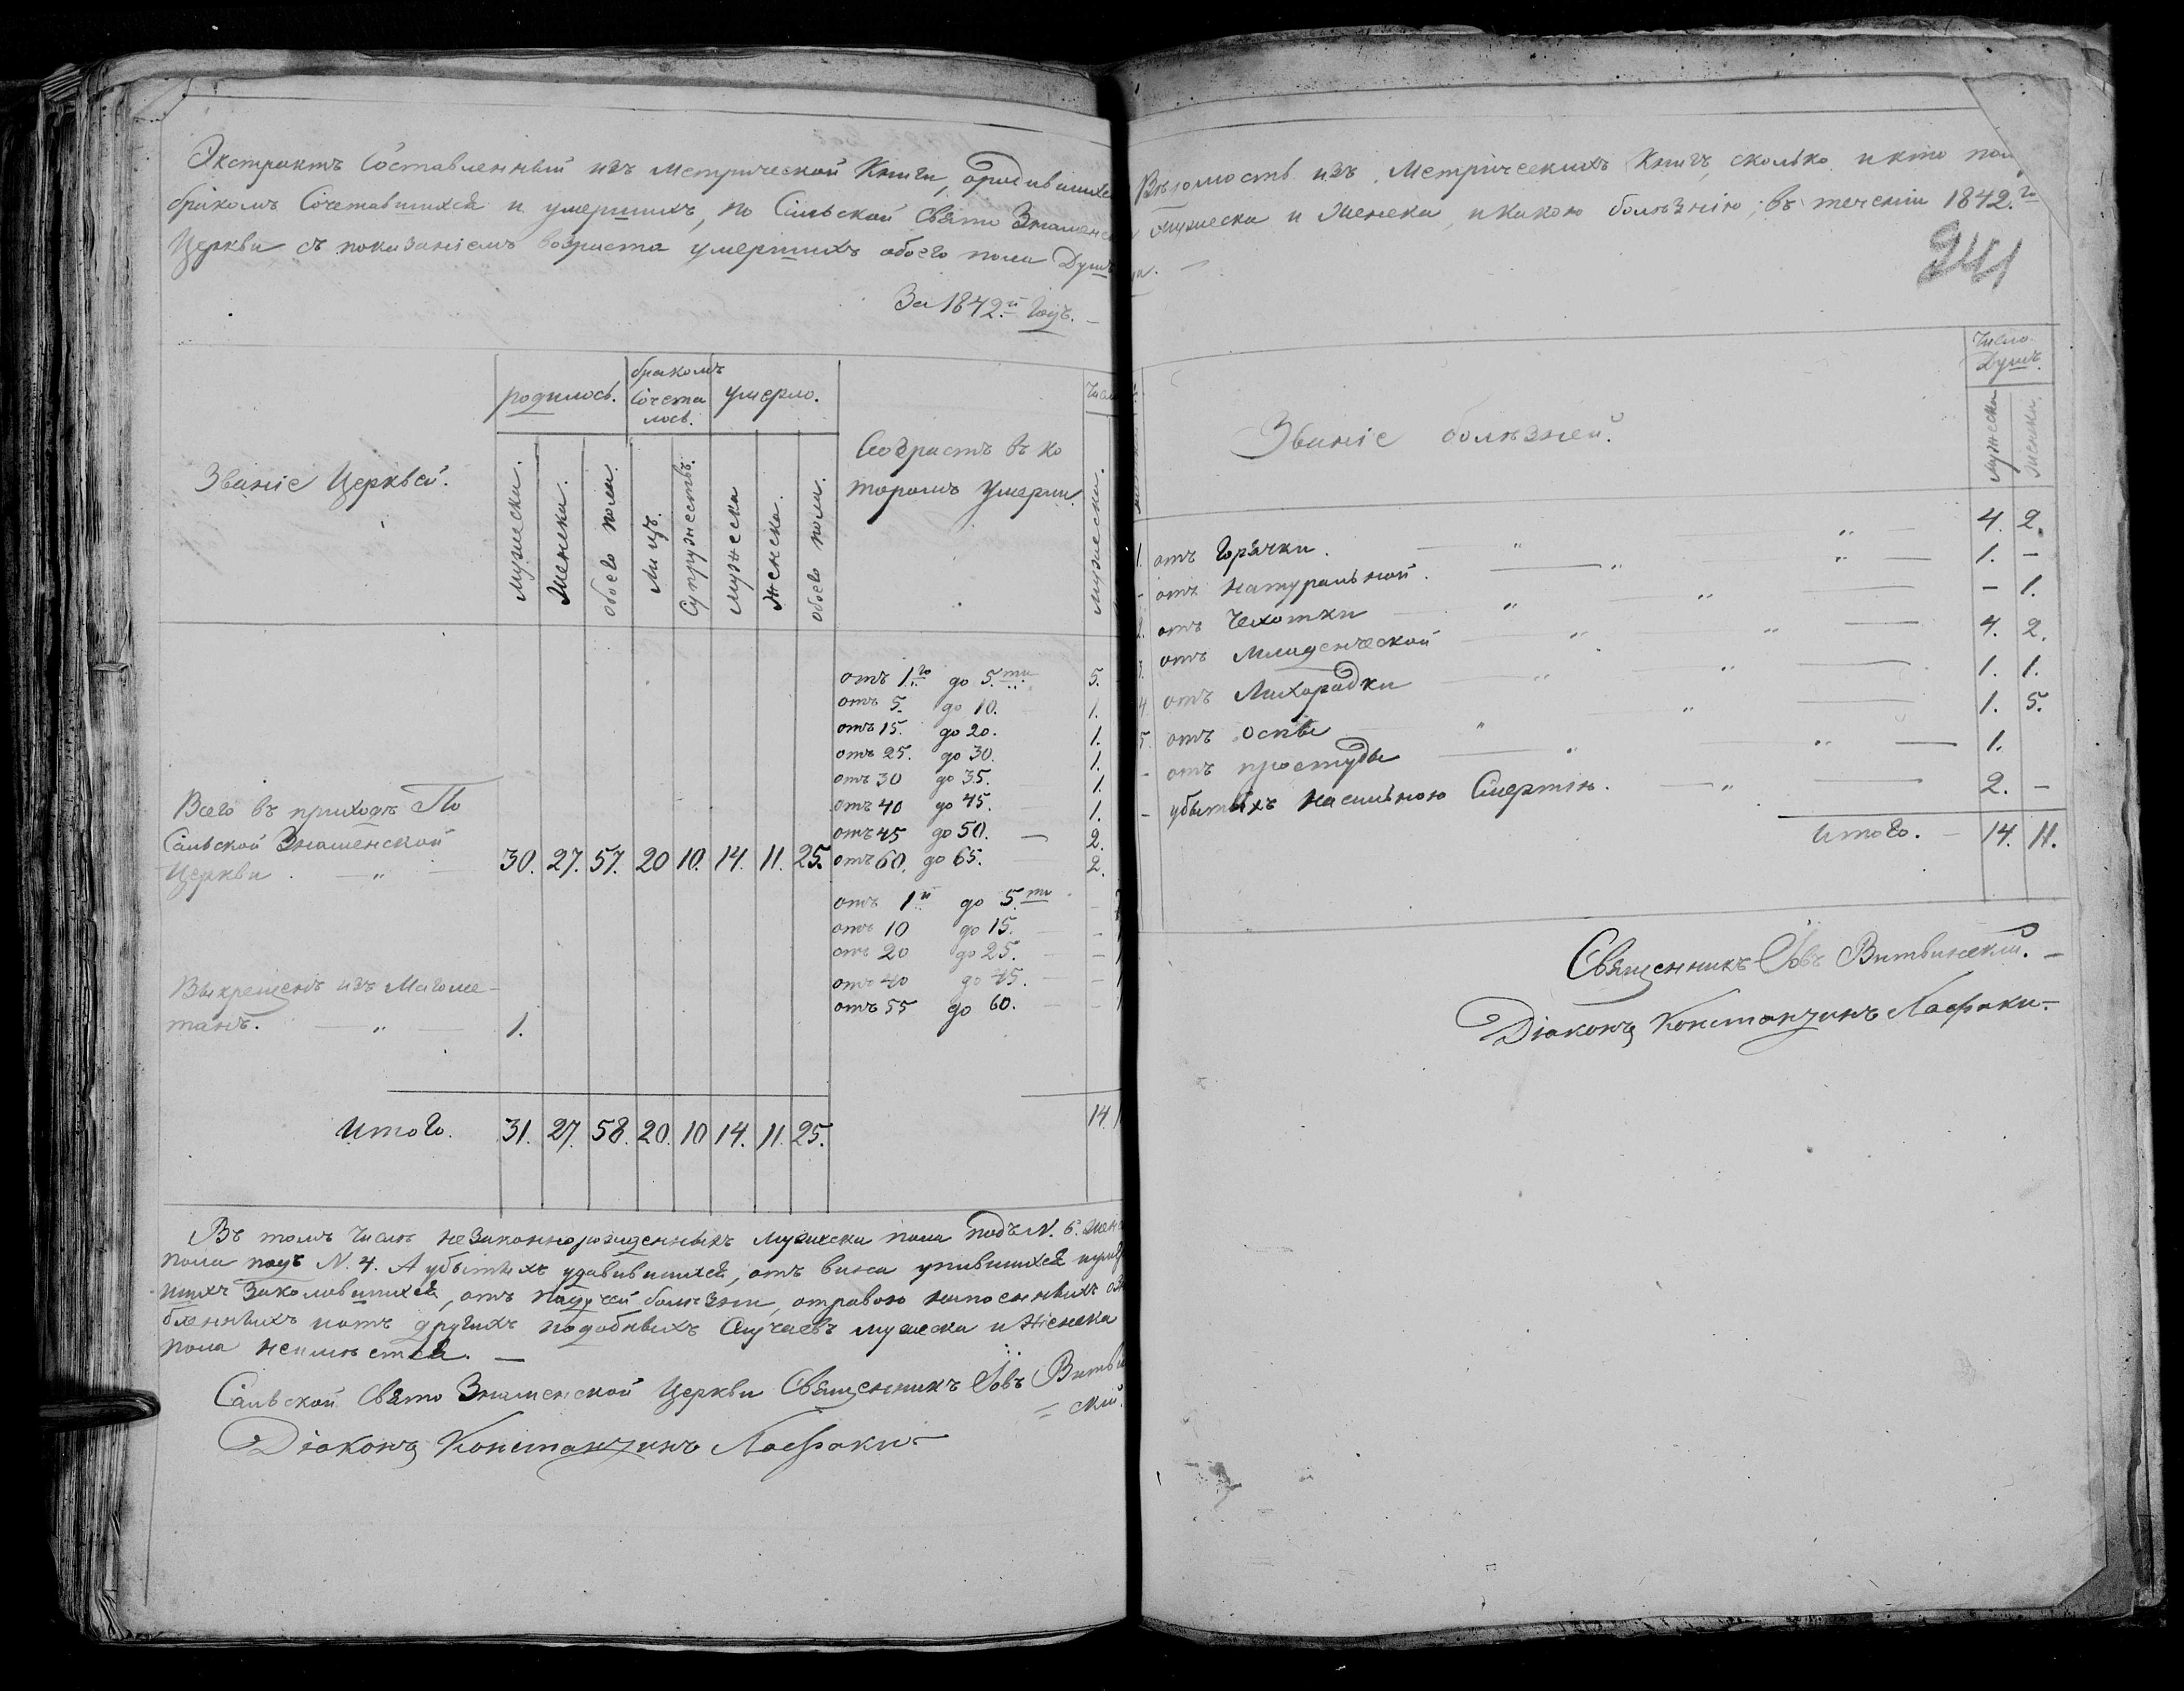 Экстрактъ Составленный изъ Метрической Книги, ородившихс
бракомъ Сочетавшихся и умершихъ, по Сальской Свято Знаменс
Церкви съ показаніемъ возраста умершихъ обоего пола Душъ
За 1842.й Годъ. —
Званіе Церквей.
родилось.
бракомъ
Сочета
лось.
умерло.
Мужеска.
Женска.
обоего пола.
Лицъ.
Супружествъ.
Мужеска
Женска.
обоего пола.
Возрастъ въ ко
торомъ Умерли.
Число
Мужеска.
отъ 1.го до 5.ти 5.
отъ 5. до 10. 1.
отъ 15. до 20. 1.
отъ 25. до 30. 1.
отъ 30 до 35. 1.
отъ 40 до 45. — 1.
отъ 45 до 50. — 2.
отъ 60. до 65. — 2.
Всего въ приходѣ По
Сальской Знаменской
Церкви . — „ — 30. 27. 57. 20 10. 14. 11. 25.
отъ 1й до 5.ти -
отъ 10 до 15. — -
отъ 20 до 25. — -
отъ 40 до 45. -
отъ 55 до 60. — -
Выкрещенъ изъ Магоме-
танъ. — „ — 1.
14.
Итого. 31. 27. 58. 20. 10 14. 11. 25.
Въ томъ Числѣ незаконнорожденныхъ мужеска пола подъ N. 6. жен
пола подъ N. 4. А убытыхъ удавившихся, отъ вина упившихся
шихъ Заколовшихся, отъ падучей болѣзни, отравою
бленныхъ иотъ другихъ подобныхъ Случаевъ мужеска и Женска
пола неимѣется. —
Сальской Свято Знаменской Церкви Священникъ Іовъ Витви
= скій.
Діаконъ Константинъ Ласфаки
Вѣдомость изъ Метрическихъ Книгъ, сколько икто пол
мужеска и Женска, икакою болѣзнію; въ теченіи 1842.го
241
Званіе болѣзней.
Число
Душъ.
Мужеска
Женска.
1. отъ Горячки. — „ — „ — 4. 2.
- отъ натуральной. — „ — „ — 1. -
2. отъ Чехотки — „ — „ — - 1.
3. отъ Младенческой — „ — „ — 4. 2.
4. отъ Лихорадки — „ — „ — 1. 1.
5. отъ Оспы — „ — „ — 1. 5.
- отъ простуды — „ — „ — 1.
- убытыхъ насильною Смертію. — „ — 2. -
Итого. — 14. 11.
Священникъ Іовъ Витвинскій. —
Діаконъ Константинъ Ласфаки —